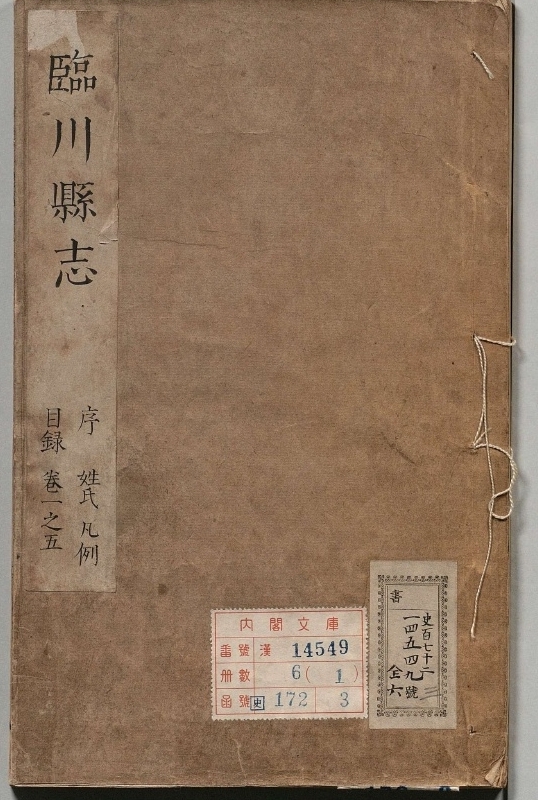 臨川縣志
序 姓氏 凡例
目録 卷一之五
內閣文庫
番號 漢 14549
册數 6(1)
函號 史 172 3
書
史百七十二
一四五四九號
全六
三